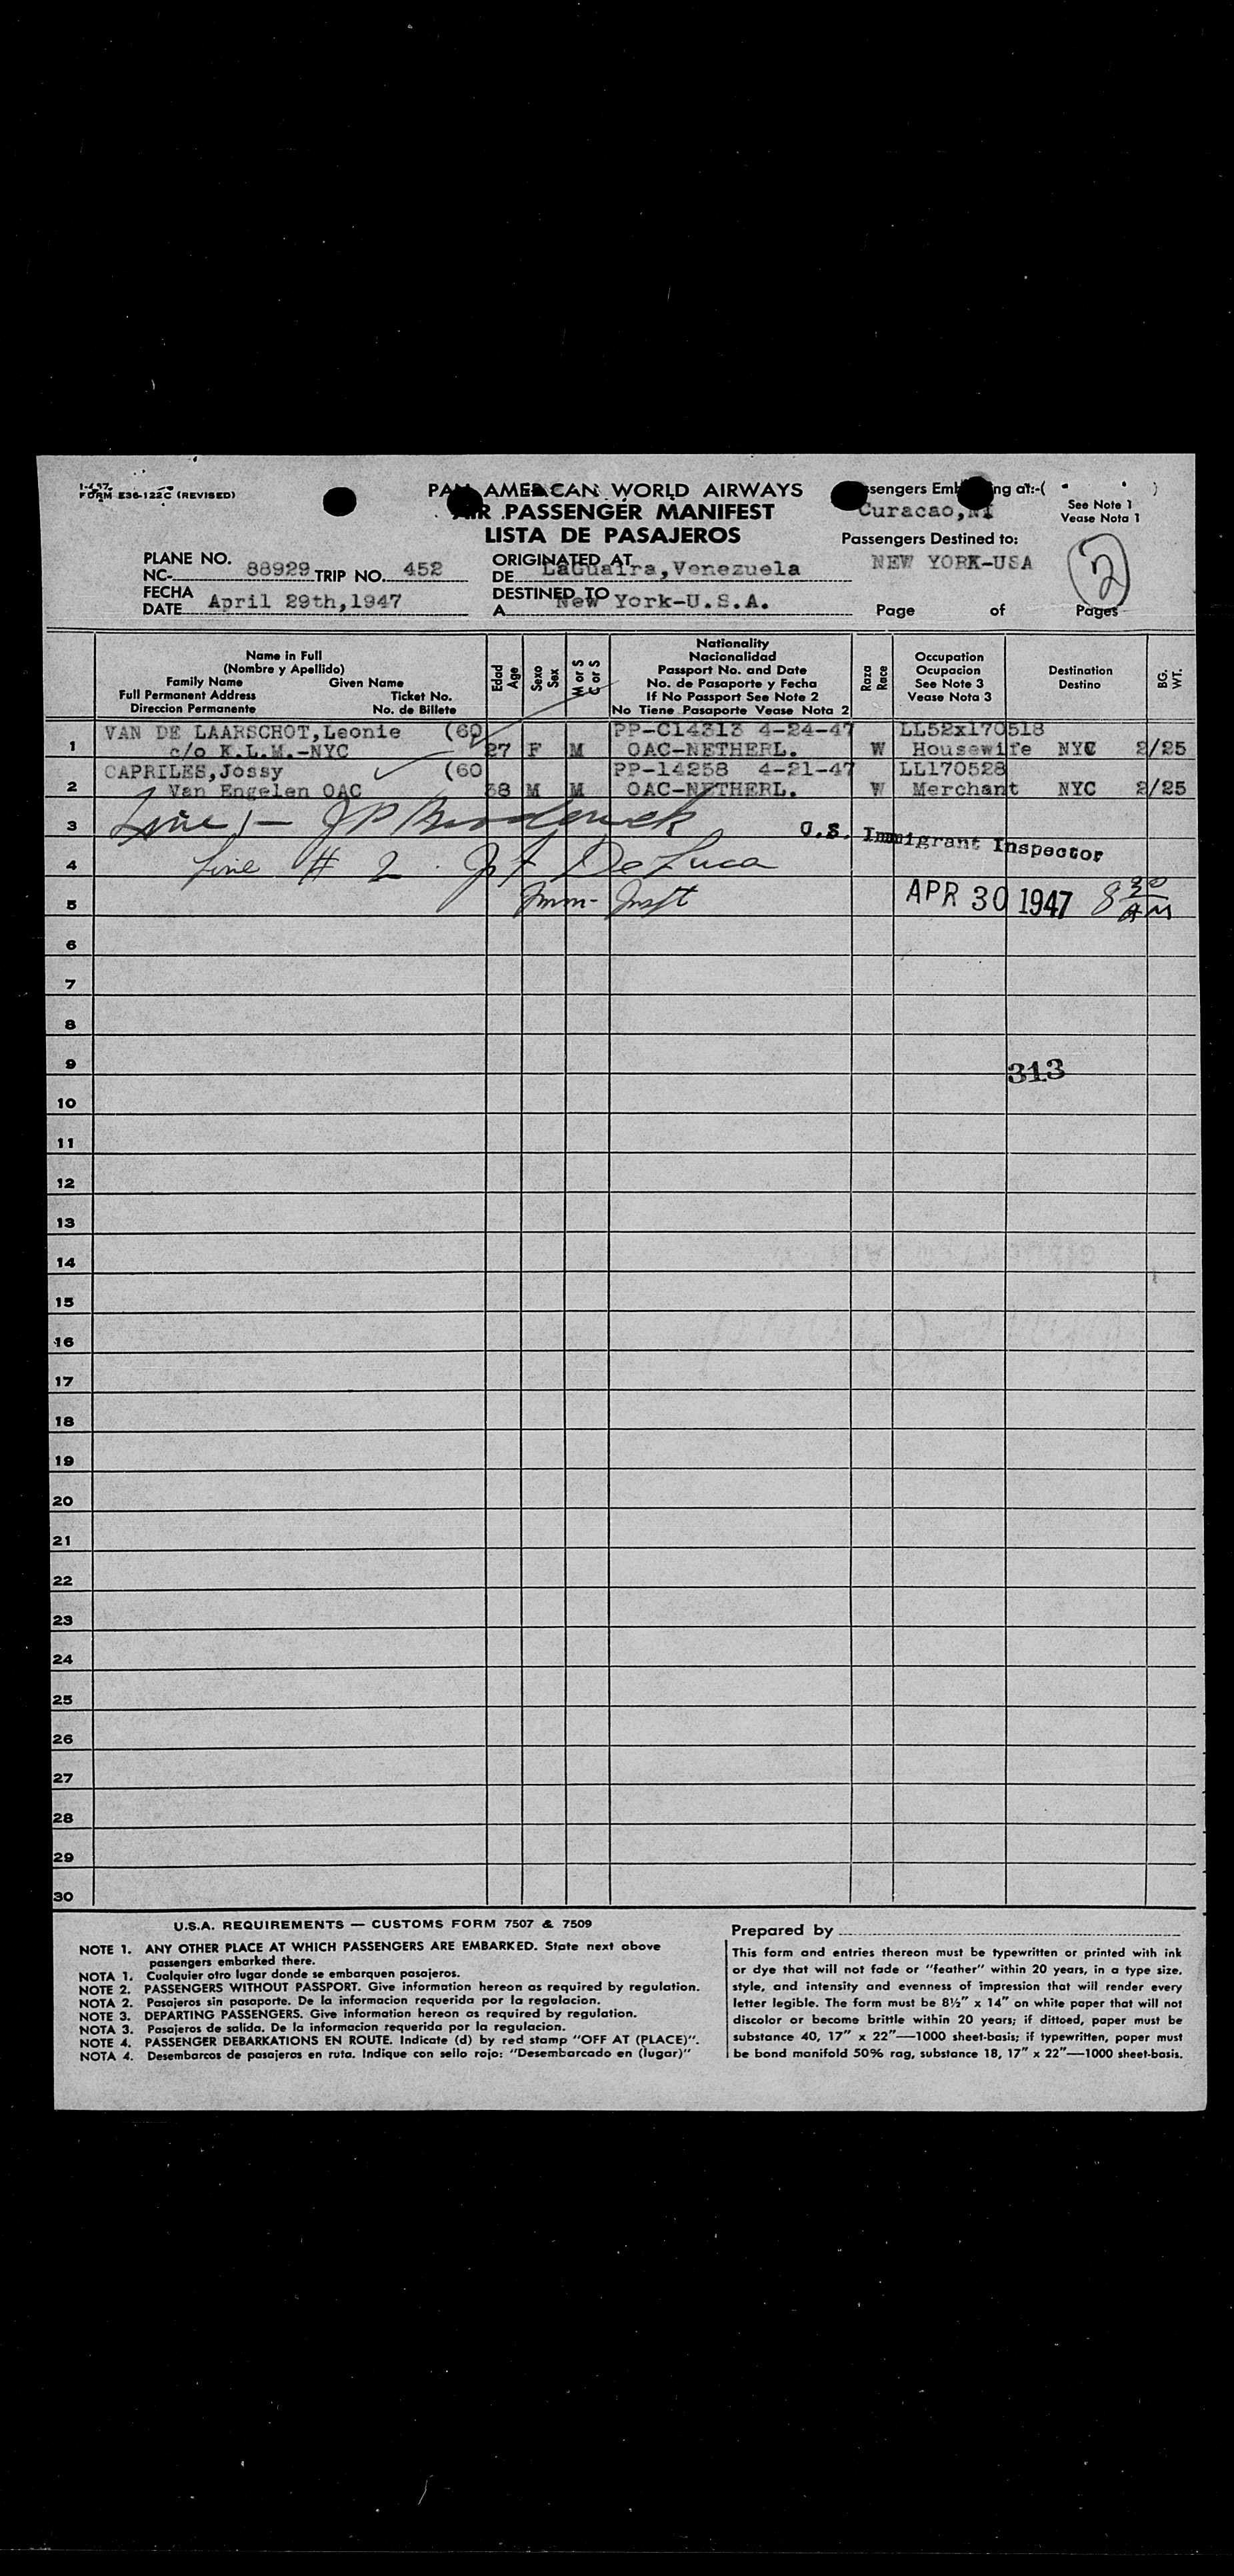 1-457
FORM E36-122C (REVISED)
PAN AMERICAN WORLD AIRWAYS
AIR PASSENGER MANIFEST
LISTA DE PASAJEROS
Passengers Embarking at:-(
)
Curacao,NI
See Note 1
Vease Nota 1
Passengers Destined to:
NEW YORK-USA
2
Page of Pages
PLANE NO.
NC- 88929 TRIP NO. 452
FECHA
DATE April 29th,1947
ORIGINATED AT
DE LaGuaira,Venezuela
DESTINED TO
A New York-U.S.A.
Name in Full
(Nombre y Apellido)
Family Name Given Name
Full Permanent Address Ticket No.
Direccion Permanente No. de Billete
Edad
Age
Sexo
Sex
M or S
C or S
Nationality
Nacionalidad
Passport No. and Date
No. de Pasaporte y Fecha
If No Passport See Note 2
No Tiene Pasaporte Vease Nota 2
Raza
Race
Occupation
Ocupacion
See Note 3
Vease Nota 3
Destination
Destino
BG.
WT.
VAN DE LAARSCHOT,Leonie (60 PP-C14313 4-24-47 LL52x170518
1 c/o K.L.M.-NYC 27 F M OAC-NETHERL. W Housewife NYC 2/25
CAPRILES,Jossy (60 PP-14258 4-21-47 LL170528
2 Van Engelen OAC 38 M M OAC-NETHERL. W Merchant NYC 2/25
3 Line 1 - JP Broderick U.S. Immigrant Inspector
4 Line # 2 . J F De Luca
5 Imm- Inspt APR 30 1947 8 30 AM
6
7
8
9 313
10
11
12
13
14
15
16
17
18
19
20
21
22
23
24
25
26
27
28
29
30
U.S.A. REQUIREMENTS — CUSTOMS FORM 7507 & 7509
NOTE 1. ANY OTHER PLACE AT WHICH PASSENGERS ARE EMBARKED. State next above
passengers embarked there.
NOTA 1. Cualquier otro lugar donde se embarquen pasajeros.
NOTE 2. PASSENGERS WITHOUT PASSPORT. Give information hereon as required by regulation.
NOTA 2. Pasajeros sin pasaporte. De la informacion requerida por la regulacion.
NOTE 3. DEPARTING PASSENGERS. Give information hereon as required by regulation.
NOTA 3. Pasajeros de salida. De la informacion requerida por la regulacion.
NOTE 4. PASSENGER DEBARKATIONS EN ROUTE. Indicate (d) by red stamp "OFF AT (PLACE)".
NOTA 4. Desembarcos de pasajeros en ruta. Indique con sello rojo: "Desembarcado en (lugar)"
Prepared by
This form and entries thereon must be typewritten or printed with ink
or dye that will not fade or "feather" within 20 years, in a type size,
style, and intensity and evenness of impression that will render every
letter legible. The form must be 8½" x 14" on white paper that will not
discolor or become brittle within 20 years; if dittoed, paper must be
substance 40, 17" x 22"—1000 sheet-basis; if typewritten, paper must
be bond manifold 50% rag, substance 18, 17" x 22"—1000 sheet-basis.